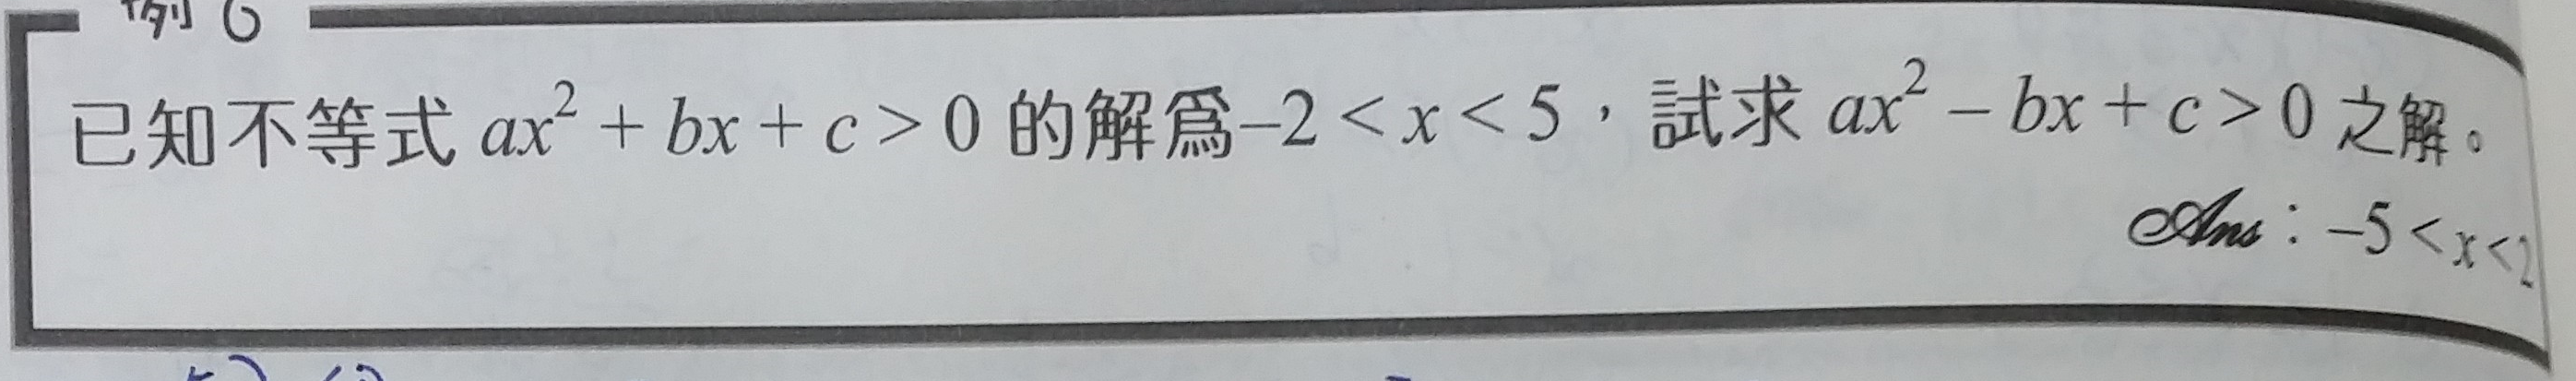 例 6
已知不等式 ax² + bx + c > 0 的解爲–2 < x < 5，試求 ax² – bx + c > 0 之解。
Ans：–5 < x < 2